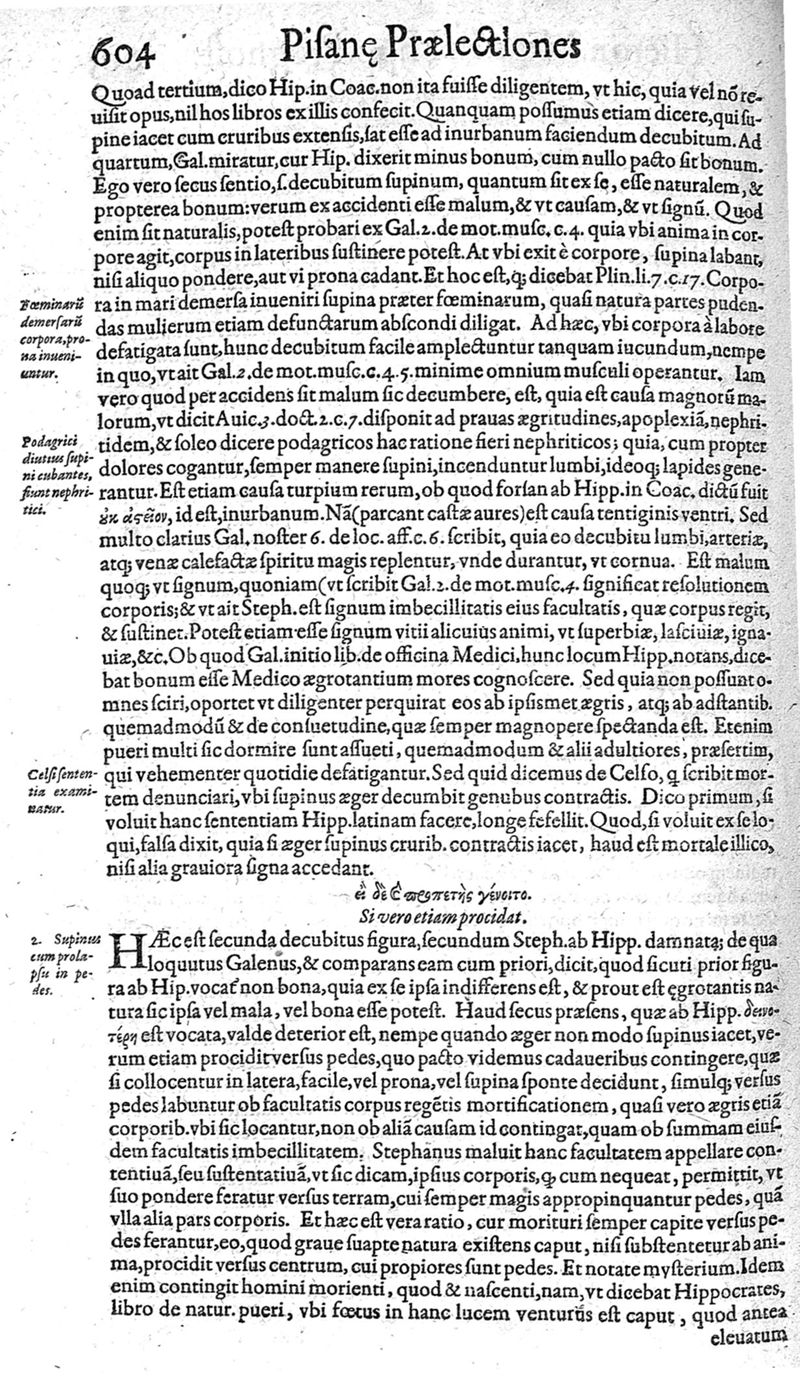 604 Piſanę Prælectiones
Quoad tertium,dico Hip.in Coac.non ita fuiſſe diligentem, vt hic, quia vel nõ re-
uiſit opus,nil hos libros ex illis confecit.Quanquam poſſumus etiam dicere,qui ſu-
pine iacet cum cruribus extenſis,ſat eſſe ad inurbanum faciendum decubitum. Ad
quartum, Gal.miratur, cur Hip. dixerit minus bonum, cum nullo pacto ſit bonum.
Ego vero ſecus ſentio,ſ.decubitum ſupinum, quantum ſit ex ſę, eſſe naturalem, &
propterea bonum:verum ex accidenti eſſe malum,& vt cauſam,& vt ſignũ. Quod
enim ſit naturalis,poteſt probari ex Gal.2.de mot.muſc. c.4. quia vbi anima in cor-
pore agit,corpus in lateribus ſuſtinere poteſt.At vbi exit è corpore, ſupina labant,
niſi aliquo pondere,aut vi prona cadant.Et hoc eſt,ꝙ dicebat Plin.li.7.c.17.Corpo-
Fœminarũ
demerſarũ
corpora,pro-
na inueni-
untur.
ra in mari demerſa inueniri ſupina præter fœminarum, quaſi natura partes puden-
das mulierum etiam defunctarum abſcondi diligat. Ad hæc, vbi corpora à labore
defatigata ſunt,hunc decubitum facile amplectuntur tanquam iucundum,nempe
in quo,vt ait Gal.2.de mot.muſc.c.4.5.minime omnium muſculi operantur. Iam
vero quod per accidens ſit malum ſic decumbere, eſt, quia eſt cauſa magnorũ ma-
lorum,vt dicit Auic.3.doct.2.c.7.diſponit ad prauas ægritudines,apoplexiã,nephri-
Podagrici
diutius ſupi-
ni cubantes,
fiunt nephri-
tici.
tidem,& ſoleo dicere podagricos hac ratione fieri nephriticos; quia, cum propter
dolores cogantur,ſemper manere ſupini,incenduntur lumbi,ideoq; lapides gene-
rantur. Eſt etiam cauſa turpium rerum,ob quod forſan ab Hipp.in Coac. dictũ fuit
ἀςεῖον, id eſt,inurbanum.Nã(parcant caſtæ aures)eſt cauſa tentiginis ventri. Sed
multo clarius Gal. noſter 6. de loc. aff.c.6. ſcribit, quia eo decubitu lumbi,arteriæ,
atq; venæ calefactæ ſpiritu magis replentur, vnde durantur, vt cornua. Eſt malum
quoq; vt ſignum, quoniam(vt ſcribit Gal.2.de mot.muſc.4. ſignificat reſolutionem
corporis;& vt ait Steph.eſt ſignum imbecillitatis eius facultatis, quæ corpus regit,
& ſuſtinet.Poteſt etiam eſſe ſignum vitii alicuius animi, vt ſuperbiæ, laſciuiæ, igna-
uiæ,&c.Ob quod Gal.initio lib.de officina Medici,hunc locum Hipp.notans,dice-
bat bonum eſſe Medico ægrotantium mores cognoſcere. Sed quia non poſſunt o-
mnes ſciri,oportet vt diligenter perquirat eos ab ipſismet ægris, atq; ab adſtantib.
quemadmodũ & de conſuetudine,quæ ſemper magnopere ſpectanda eſt. Etenim
pueri multi ſic dormire ſunt aſſueti, quemadmodum & alii adultiores, præſertim,
Celſi ſenten-
tia exami-
natur.
qui vehementer quotidie defatigantur. Sed quid dicemus de Celſo, ꝗ ſcribit mor-
tem denunciari,vbi ſupinus æger decumbit genubus contractis. Dico primum, ſi
voluit hanc ſententiam Hipp.latinam facere,longe fefellit.Quod,ſi voluit ex ſe lo-
qui,falſa dixit, quia ſi æger ſupinus crurib. contractis iacet, haud eſt mortale illico,
niſi alia grauiora ſigna accedant.
εἰ δὲ ϗ προπετὴς γένοιτο.
Si vero etiam procidat.
2. Supinus
cum prola-
pſu in pe-
des.
HÆc eſt ſecunda decubitus figura,ſecundum Steph.ab Hipp. damnata; de qua
loquutus Galenus,& comparans eam cum priori,dicit,quod ſicuti prior figu-
ra ab Hip.vocat non bona,quia ex ſe ipſa indifferens eſt, & prout eſt ęgrotantis na-
tura ſic ipſa vel mala, vel bona eſſe poteſt. Haud ſecus præſens, quæ ab Hipp. δεινο-
τέρη eſt vocata, valde deterior eſt, nempe quando æger non modo ſupinus iacet,ve-
rum etiam procidit verſus pedes,quo pacto videmus cadaueribus contingere,quæ
ſi collocentur in latera,facile,vel prona,vel ſupina ſponte decidunt, ſimulq; verſus
pedes labuntur ob facultatis corpus regẽtis mortificationem, quaſi vero ægris etiã
corporib.vbi ſic locantur,non ob aliã cauſam id contingat,quam ob ſummam eiuſ-
dem facultatis imbecillitatem. Stephanus maluit hanc facultatem appellare con-
tentiuã,ſeu ſuſtentatiuã,vt ſic dicam,ipſius corporis,ꝙ cum nequeat, permittit, vt
ſuo pondere feratur verſus terram,cui ſemper magis appropinquantur pedes, quã
vlla alia pars corporis. Et hæc eſt vera ratio, cur morituri ſemper capite verſus pe-
des ferantur,eo,quod graue ſuapte natura exiſtens caput, niſi ſubſtentetur ab ani-
ma,procidit verſus centrum, cui propiores ſunt pedes. Et notate myſterium.Idem
enim contingit homini morienti, quod & naſcenti,nam,vt dicebat Hippocrates,
libro de natur. pueri, vbi fœtus in hanc lucem venturus eſt caput, quod antea
eleuatum